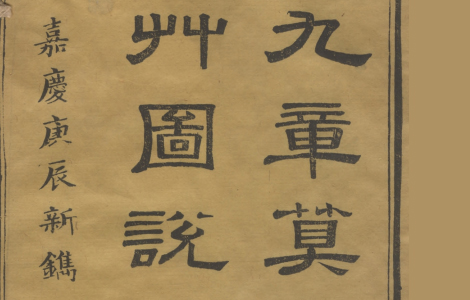 九章算
艸圖說
嘉慶庚辰新鐫